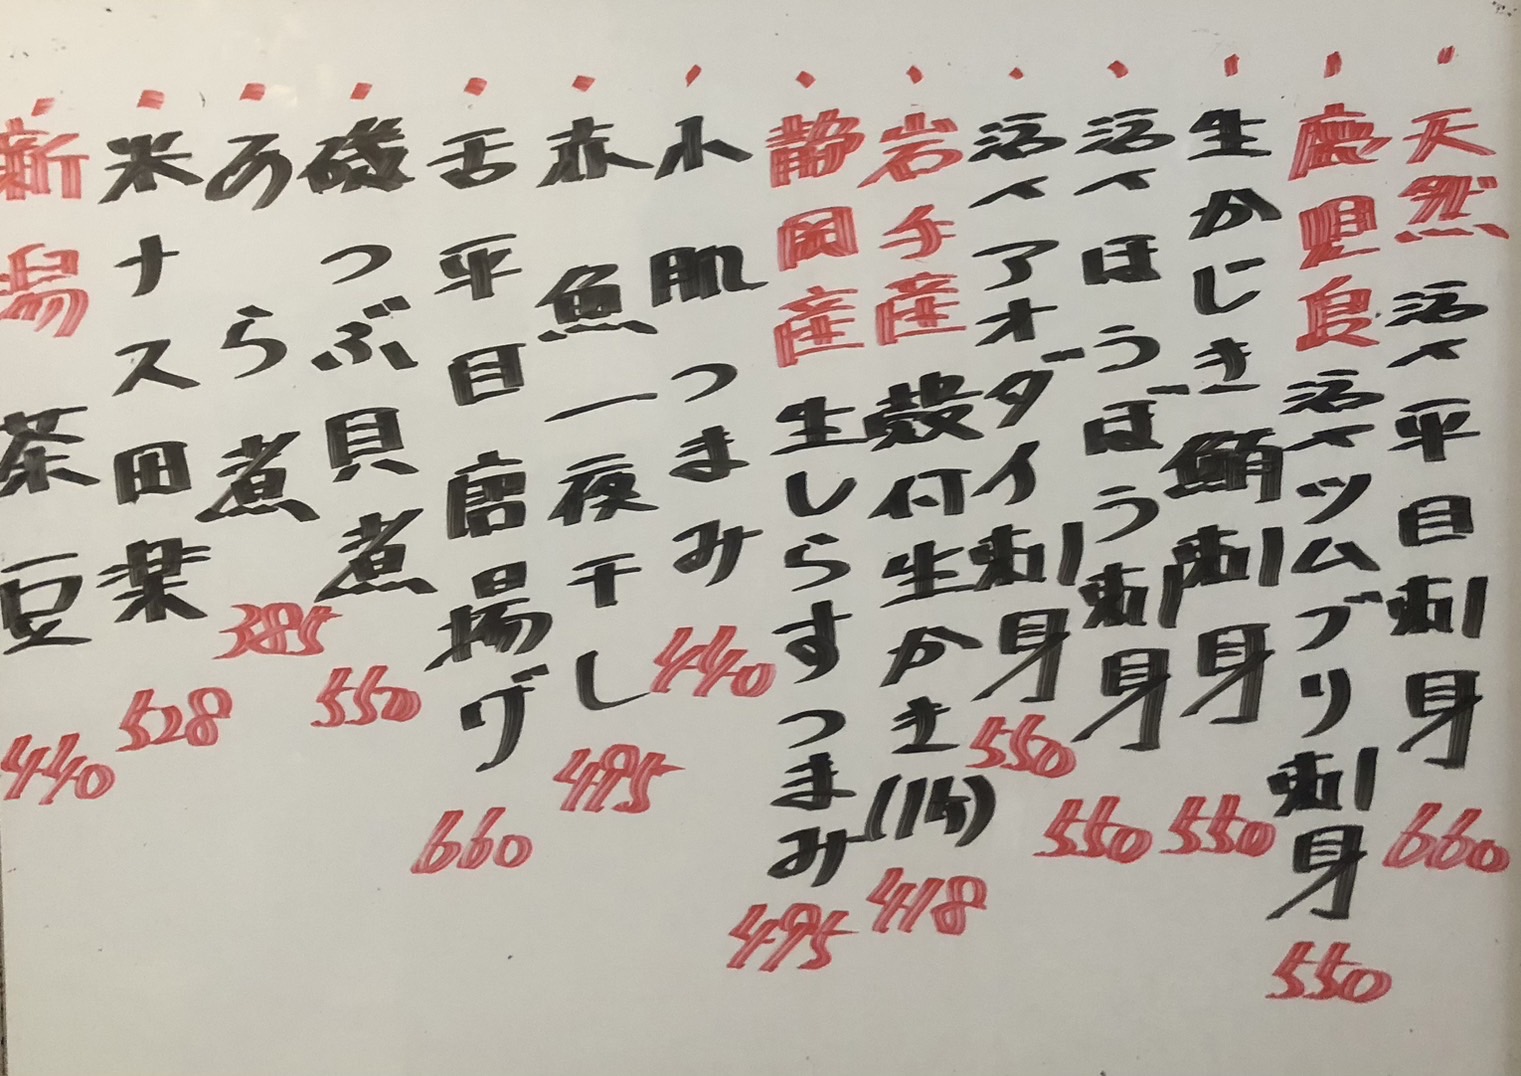 天然 活〆平目刺身 660
鹿児島 活〆ツムブリ刺身 550
生かじき鮪刺身 550
活〆ほうぼう刺身 550
活〆アオダイ刺身 550
岩手産 殻付生かき(1ヶ) 418
静岡産 生しらすつまみ 495
小肌つまみ 440
赤魚一夜干し 495
舌平目唐揚げ 660
磯つぶ貝煮 550
あら煮 385
米ナス田楽 528
新潟 茶豆 440